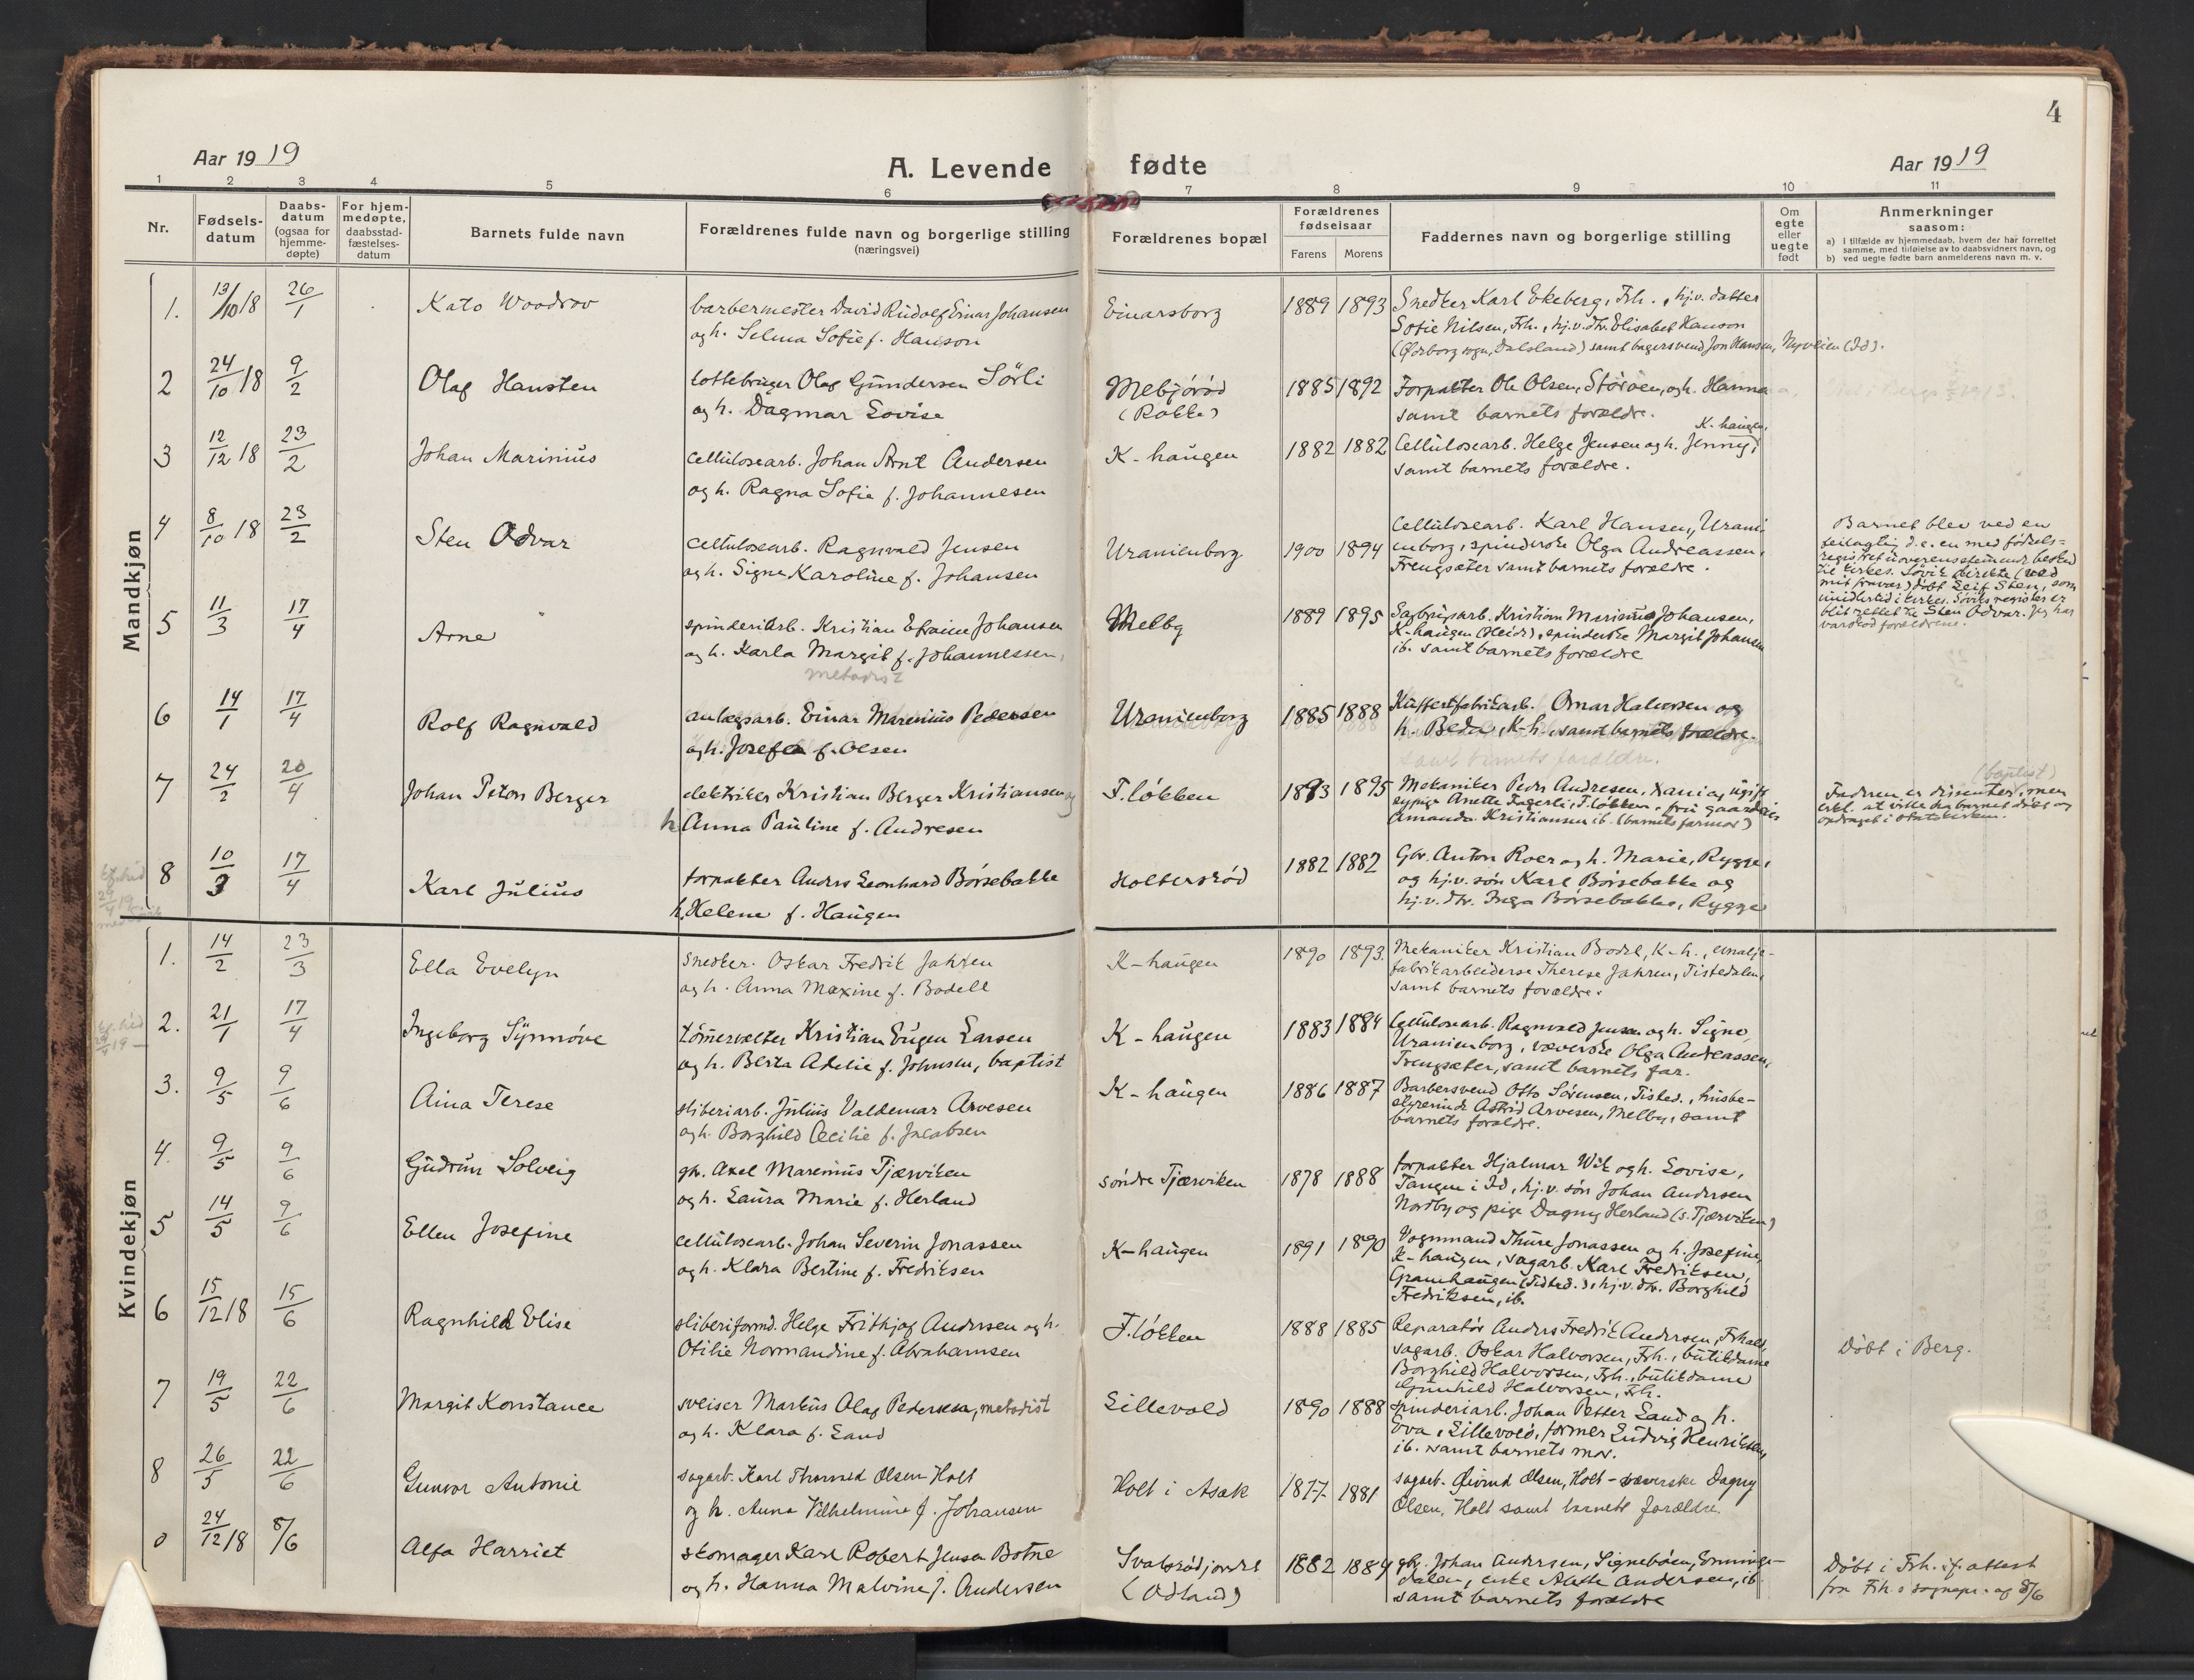 4
Aar 1919
A. Levende fødte
Aar 1919
1 2 3 4 5 6 7 8 9 10 11
Nr.
Fødsels-
datum
Daabs-
datum
(ogsaa for
hjemme-
døpte)
For hjem-
medøpte,
daabsstad-
fæstelses-
datum
Barnets fulde navn
Forældrenes fulde navn og borgerlige stilling
(næringsvei)
Forældrenes bopæl
Forældrenes
fødselsaar
Farens Morens
Faddernes navn og borgerlige stilling
Om
egte
eller
uegte
født
Anmerkninger
saasom:
a) i tilfælde av hjemmedaab, hvem der har forrettet
samme, med tilføielse av to daabsvidners navn, og
b) ved uegte fødte barn anmelderens navn m. v.
Mandkjøn
1. 13/10 18 26/1 Kato Woodrov
barbermester David Rudolf Einar Johansen
og h. Selma Sofie f. Hanson
Einarsborg 1889 1893
Snedker Karl Ekeberg, Frh., hj.v. datter
Sofie Nilsen, Frh., hj.v. dtr. Elisabet Hanson
(Ødeborg sogn, Dalsland) samt bagersvend Jon Hansen, Nyveien (Id).
2 24/10 18 9/2 Olaf Hansten
lottebruger Olaf Gundersen Sörli
og h. Dagmar Lovise
Mebjöröd
(Rokke)
1885 1892
Forpakter Ole Olsen, Störöen, og h. Hanna
samt barnets forældre.
3 12/12 18 23/2 Johan Marinius
cellulosearb. Johan Arnt Andersen
og h. Ragna Sofie f. Johannesen
K-haugen 1882 1882
K-haugen,
Cellulosearb. Helge Jensen og h. Jenny,
samt barnets forældre.
4 8/10 18 23/2 Sten Odvar
cellulosearb. Ragnvald Jensen
og h. Signe Karoline f. Johansen
Uranienborg 1900 1894
Cellulosearb. Karl Hansen, Urani-
enborg, spinderske Olga Andreassen,
Trengsæter samt barnets forældre.
Barnet blev ved en
feilagtig d.e. en med fødsels-
registret uoverensstemmende besked
til kirkes. Sövik direkte (ved
mit fravær) döbt Leif Sten, som
imidlertid i kirkes. Söviks register er
blit rettet til Sten Odvar. Jeg har
varskod forældrene.
5 11/3 17/4 Arne
spinderiarb. Kristian Efraim Johansen
og h. Karla Margit f. Johannessen,
metodist
Melby 1889 1895
Sagbrugsarb. Kristian Marinius Johansen,
K-haugen, spinderske Margit Johansen
ib. samt barnets forældre
6 14/1 17/4 Rolf Ragnvald
anlægsarb. Einar Marenius Pedersen
og h. Josefa f. Olsen
Uranienborg 1885 1888
Kuffertfabrikarb. Omar Halvorsen og
h. Beda, K-h., samt barnets forældre.
samt barnets forældre.
7 24/2 20/4 Johan Peter Berger
elektriker Kristian Berger Kristiansen og
h. Anna Pauline f. Andresen
T.lökken 1893 1895
Mekaniker Peder Andresen, ugift
sypige Anette Fagerli, T.lökken, fru gaardeier
Amanda Kristiansen ib. (barnets farmor)
(baptist)
Faderen er dissenter, men
erkl. at ville ha barnet döbt og
opdraget i statskirken.
8 10/3 17/4 Karl Julius
forpakter Anders Leonhard Börsebakke
h. Helene f. Haugen
Holtersröd 1882 1882
Gbr. Anton Roer og h. Marie, Rygge,
og hj.v. sön Karl Börsebakke og
hj.v. dtr. Inga Börsebakke, Rygge
Kvindekjøn
1. 14/2 23/3 Ella Evelyn
snedker Oskar Fredrik Jahren
og h. Anna Maxine f. Bodell
K-haugen 1890 1893.
Mekaniker Kristian Bodel, K-h., emalje-
fabrikarbeiderse Therese Jahren, Tistedalen,
samt barnets forældre.
2. 21/1 17/4 Ingeborg Synnöve
tömmervelter Kristian Eugen Larsen
og h. Berta Adelie f. Johnsen, baptist
K-haugen 1883 1884
Cellulosearb. Ragnvald Jensen og h. Signe,
Uranienborg, væverske Olga Andreassen,
Trengsæter, samt barnets far.
3. 9/5 9/6 Aina Terese
sliberiarb. Julius Valdemar Arvesen
og h. Borghild Cecilie f. Jacobsen
K-haugen 1886 1887
Barbersvend Otto Sörensen, Tisted., husbe-
styrerinde Astrid Arvesen, Melby, samt
barnets forældre.
4. 9/5 9/6 Gudrun Solveig
gbr. Axel Marenius Tjærviken
og h. Laura Marie f. Herland
söndre Tjærviken 1878 1888
forpakter Hjalmar Wik og h. Lovise,
Tangen i Id, hj.v. sön Johan Andersen
Nordby og pige Dagny Herland (s. Tjærviken)
5 14/5 9/6 Ellen Josefine
cellulosearb. Johan Severin Jonassen
og h. Klara Bertine f. Fredriksen
K-haugen 1891 1890
Vognmand Thure Jonassen og h. Josefine,
K-haugen, sagarb. Karl Fredriksen,
Granhaugen (Tisted.), hj.v. dtr. Borghild
Fredriksen, ib.
6 15/12 18 15/6 Ragnhild Elise
sliberiformd. Helge Frithjof Andersen og h.
Otilie Normandine f. Abrahamsen
T.lökken 1888 1885
Reparatör Anders Fredrik Andersen, Frhald,
sagarb. Oskar Halvorsen, Frh., butikdame
Borghild Halvorsen, Frh., butikdame
Gunhild Halvorsen, Frh.
Döbt i Berg.
7 19/5 22/6 Margit Konstance
sveiser Markus Olaf Pedersen, metodist
og h. Klara f. Sand
Lillevold 1890 1888
spinderiarb. Johan Petter Sand og h.
Eva, Lillevold, former Ludvig Henriksen,
ib. samt barnets mor.
8 26/5 22/6 Gunvor Antonie
sagarb. Karl Thorvald Olsen Holt
og h. Anna Vilhelmine f. Johansen
Holt i Asak 1877 1881
sagarb. Øivind Olsen, Holt - væverske Dagny
Olsen, Holt samt barnets forældre.
0 24/12 18 8/6 Alfa Harriet
skomager Karl Robert Jensen Botne
og h. Hanna Malvine f. Andersen
Svalerödjordet
(Odland)
1882 1884
gbr. Johan Andersen, Signebøen, Enninge-
dalen, enke Andersen, ib.
samt barnets forældre
Döbt i Frh. if. attest
fra Frh.s sognepr. af 8/6